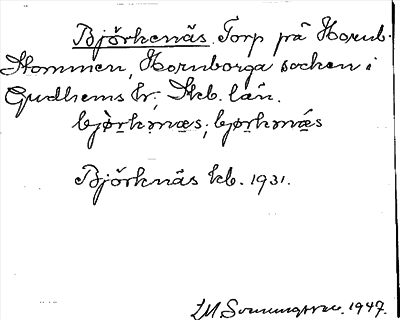 Björkenäs Torp på Hornb.
Stommen, Hornborga socken i
Gudhems hr; Skb. län.
bjö̀rkǝnæs; bjørkǝnǽs
Björknäs kb. 1931.
1947.